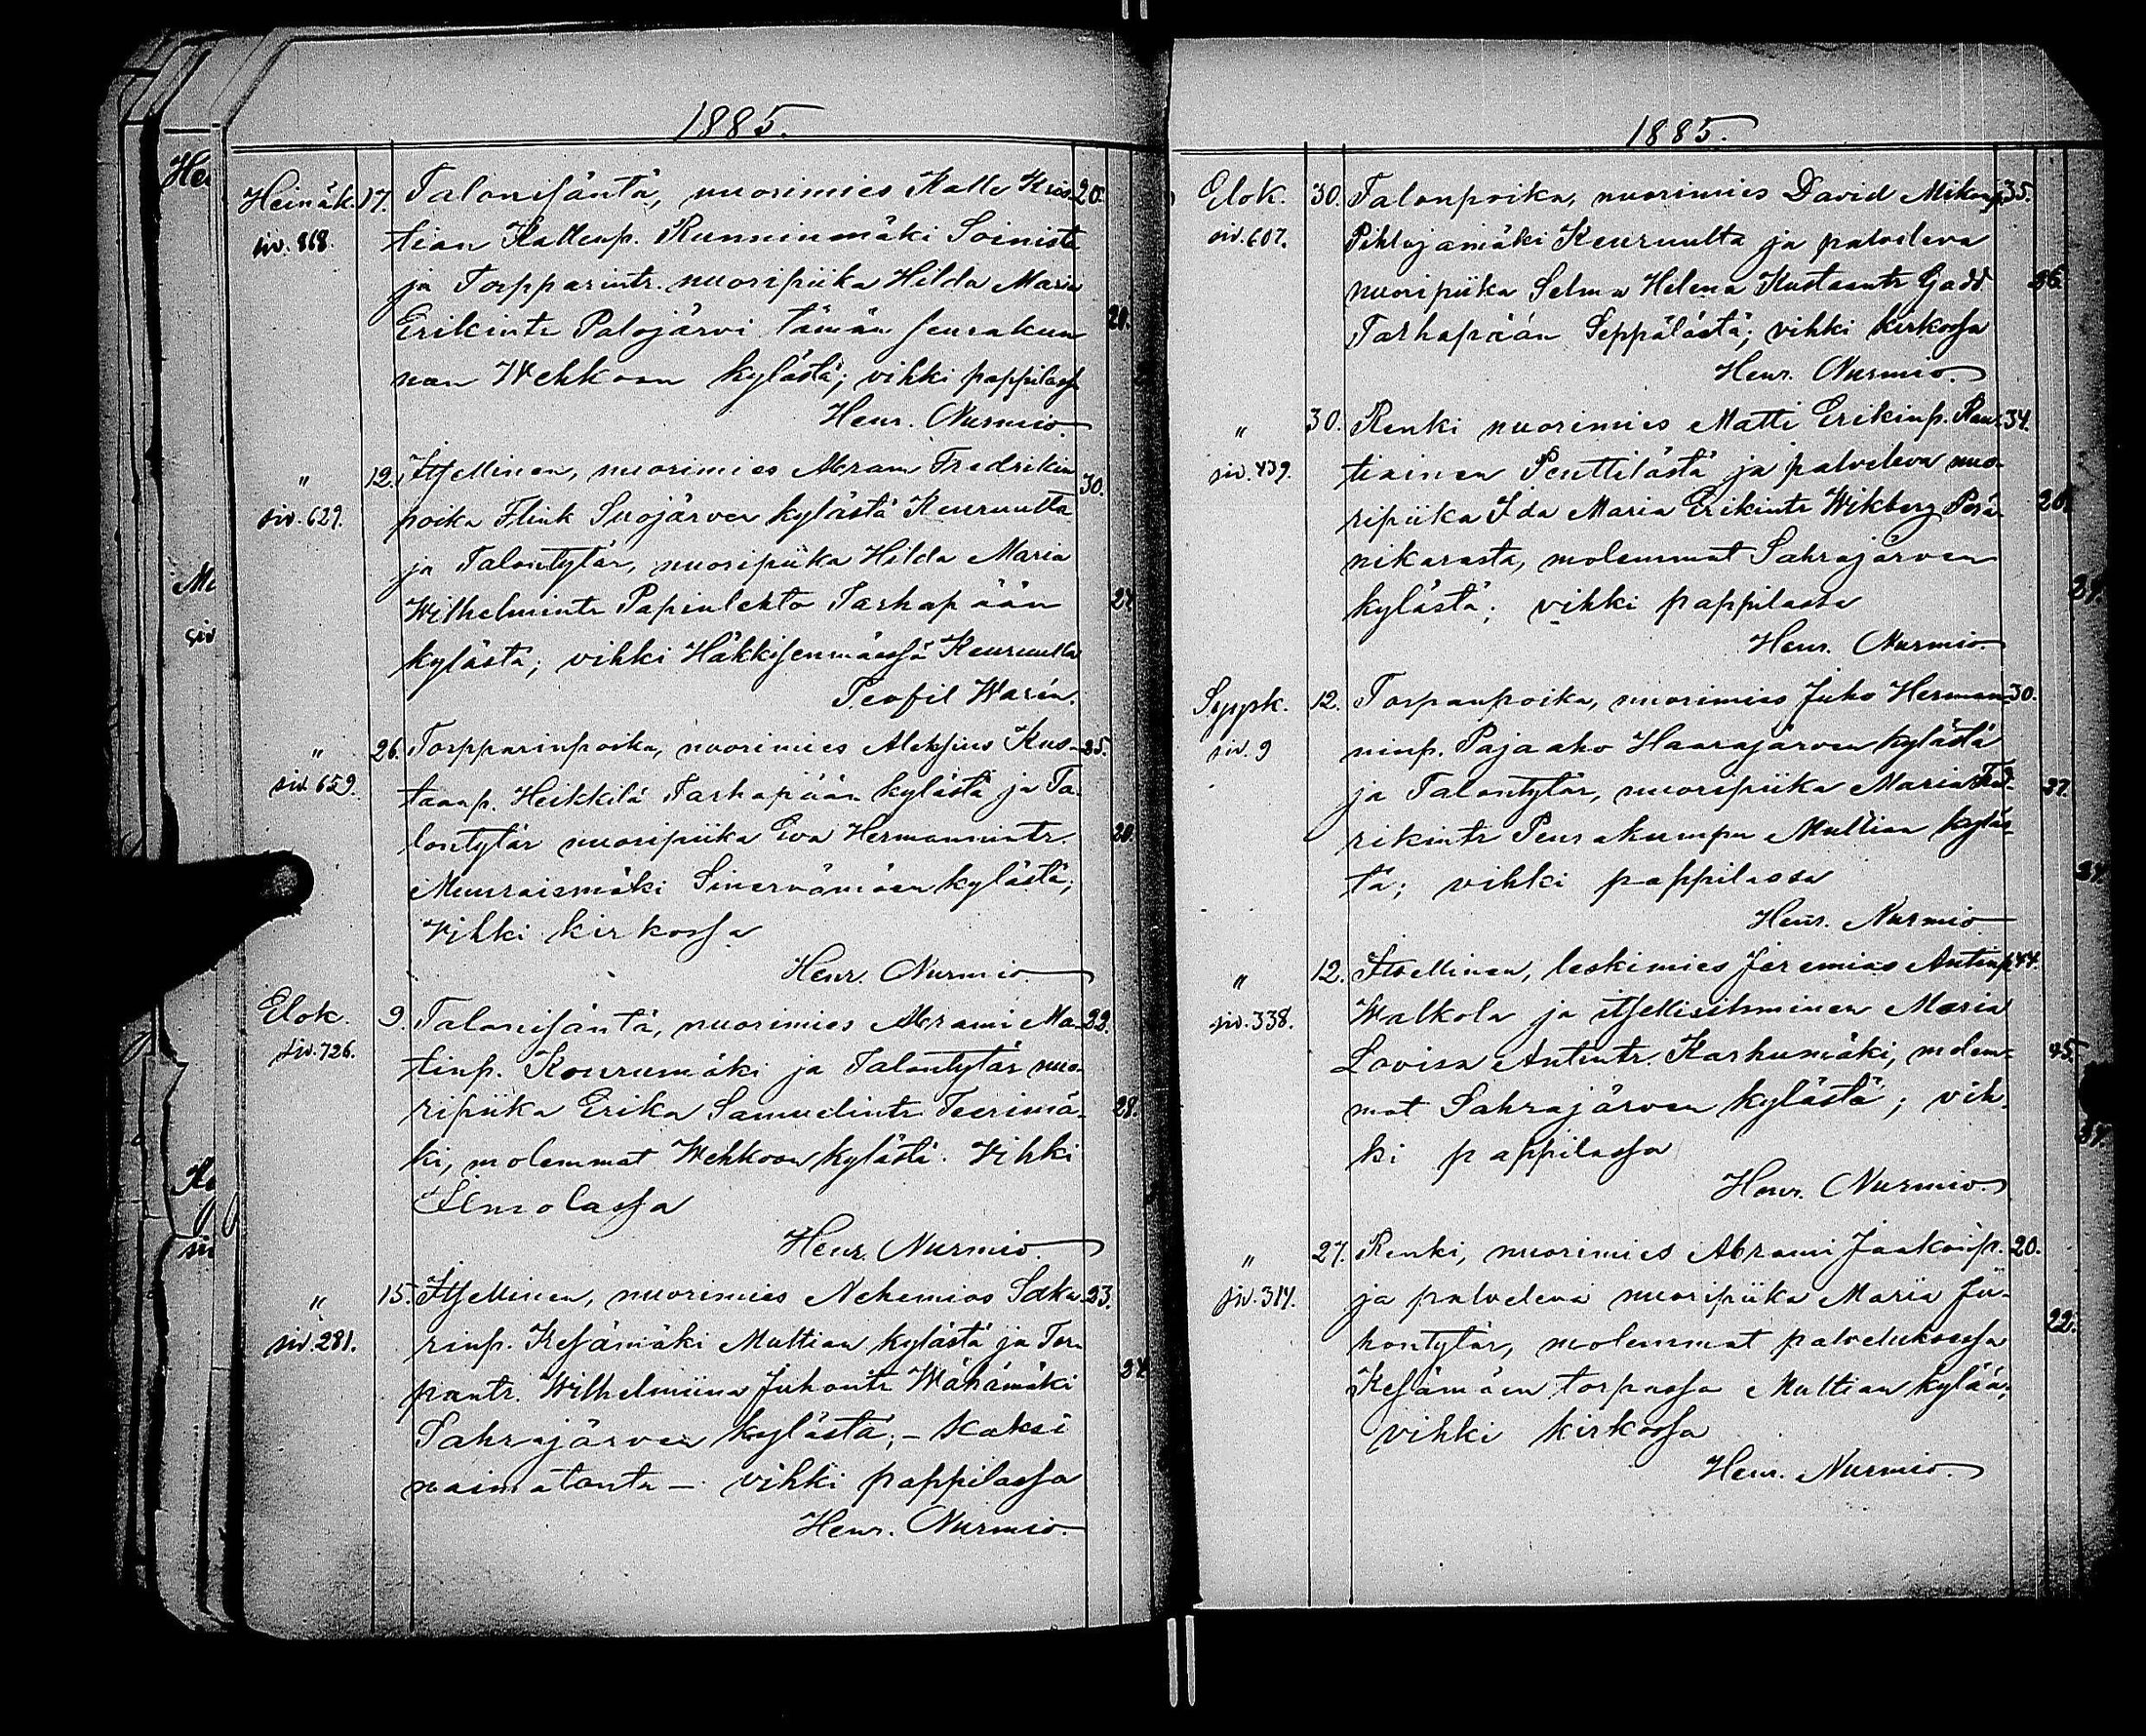 1885.
Heinäk. 17. Talonisäntä, nuorimies Kalle Kris- 20.
siv. 818. tian Kallenp. Runninmäki Soinista
ja Torpparintr. nuoripiika Hilda Maria
Erikintr Palojärvi tämän seurakun 20.
nan Wehkoon kylästä; vihki pappilassa
Henr. Nurmio.
" 12. Itsellinen, nuorimies Abram Fredrikin 30.
siv. 629. poika Flink Suojärven kylästä Keuruulta
ja Talontytär, nuoripiika Hilda Maria
Wilhelmintr Papinlehto Tarhapään 27
kylästä; vihki Häkkisenmäessä Keuruulla
Teofil Warén.
" 26. Torpparinpoika, nuorimies Aleksius Kus- 25.
siv. 659. taanp. Heikkilä Tarhapään kylästä ja Ta-
lontytär nuoripiika Eva Hermannintr. 20.
Muuraismäki Sinervämäen kylästä;
vihki kirkossa
Henr. Nurmio
Elok. 9. Talonisäntä, nuorimies Abrami Ma- 22.
siv. 726. tinp. Kourumäki ja Talontytär nuo-
ripiika Erika Samuelintr Teerimä- 28.
ki, molemmat Wehkoon kylästä. Vihki
Henr. Nurmio.
" 15. Itsellinen, nuorimies Nehemias Saka- 23.
siv. 281. rinp. Kesämäki Multian kylästä ja Tor-
pantr. Wilhelmiina Juhontr Wähämäki 24
Sahrajärven kylästä; - kaksi
naimatonta - vihki pappilassa
Henr. Nurmio.
1885.
Elok. 30. Talonpoika, nuorimies David Mikonp. 35.
siv. 607. Pihlajamäki Keuruulta ja palveleva
nuoripiika Selma Helena Kustaantr Gadd 26
Tarhapään Seppälästä; vihki kirkossa
Henr. Nurmio.
" 30. Renki nuorimies Matti Erikinp. Rau- 34.
siv. 439. tiainen Penttilästä ja palveleva nuo-
ripiika Ida Maria Erikintr Wikberg Perä- 20.
nikarasta, molemmat Sahrajärven
kylästä; vihki pappilassa
Henr. Nurmio.
Syysk. 12. Torpanpoika, nuorimies Juho Herman- 30.
siv. 9 ninp. Pajaaho Haarajärven kylästä
ja Talontytär, nuoripiika Maria Fred- 37.
rikintr Peurakumpu Multian kyläs-
tä; vihki pappilassa
Henr. Nurmio.
" 12. Itsellinen, leskimies Jeremias Antinp. 44.
siv. 338. Walkola ja itsellisihminen Maria
Lovisa Antintr. Karhumäki, molem- 45.
mat Sahrajärven kylästä; vih-
ki pappilassa
Henr. Nurmio.
" 27. Renki, nuorimies Abrami Jaakonp. 20.
siv. 314. ja palveleva nuoripiika Maria Ju-
hontytär, molemmat palveluksessa 22.
Kesämäen torpassa Multian kylää;
vihki kirkossa
Henr. Nurmio.